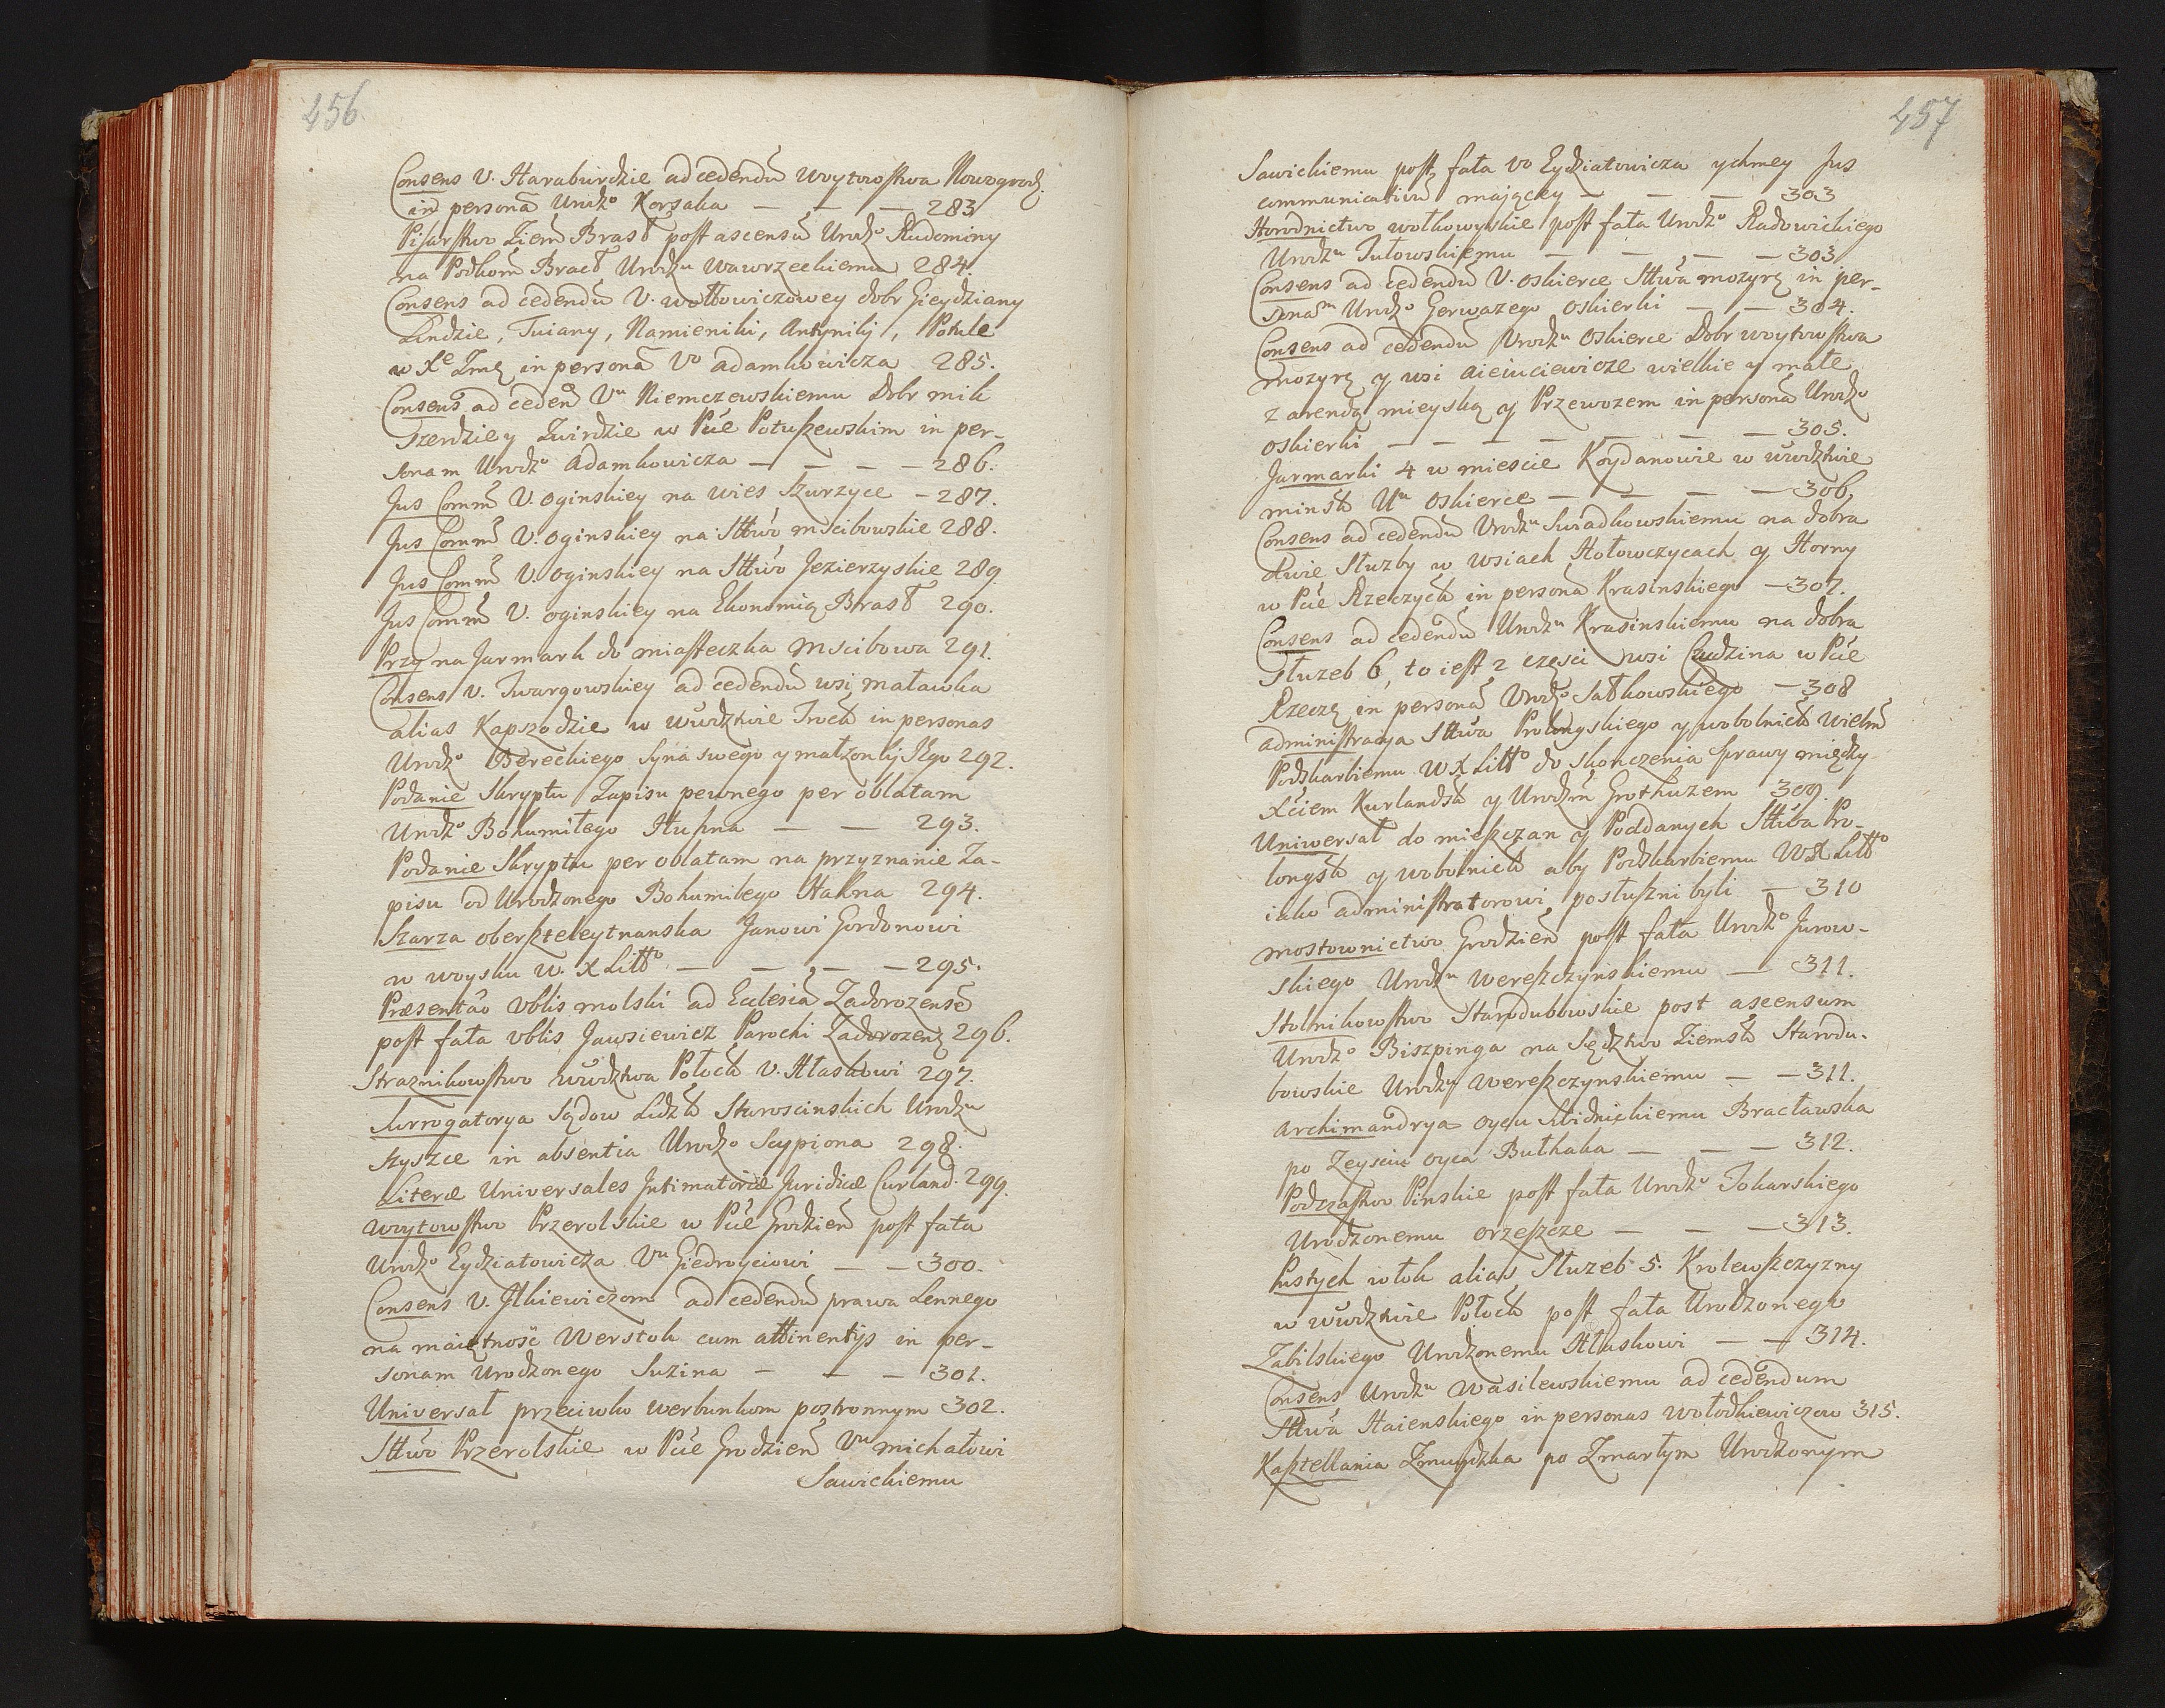 456
Consens U. Haraburdzie ad cedendū woytowstwa Nowogrodz.
in personā Urodzo Korsaka — — — 283
Pisarstwo Ziem Brast post ascensū Urodzo Rudominy
na Podkom Bract Urodzu Wawrzeckiemu 284.
Consens ad cedendū U. wołłowiczowey dobr Gieydziany
Lindzie, Tuiany, Namieniki, Antyniki, Pokule
w Xe Zmę in personā Vo adamkowicza 285.
Consens ad ceden Vu Niemczewskiemu Dobr mik
Szerdzie y Zwirdzie w Pūe Potuszewskim in per-
sonam Urodzo Adamkowicza — — — — 286.
Jus Comm U. Oginskiey na wies Szurzyce — 287.
Jus Comm U. Oginskiey na Sttwo mscibowskie 288.
Jus Comm U. Oginskiey na Sttwo Jezierzyskie 289.
Jus Comm U. oginskiey na Ekonomią Brast 290.
Przy na Jarmark do miasteczka mscibowa 291.
Consens U. Twargowskiey ad cedendū wsi matawka
alias Kapszodzie w wūdztwie Trock in personas
Urodzo Bereckiego syna swego y małzonki JEgo 292.
Podanie Skryptu Zapisu pewnego per oblatam
Urodzo Bohumiłego Hupna — — 293.
Podanie Skryptu per oblatam na przyznanie Za-
pisu od Urodzonego Bohumiłego Hakna 294.
Szarza oberszteleytnanska Janowi Gordonowi
w woysku W. X Litto — — — — 295.
Præsentāo Vblis molski ad Eclesiā Zadorozensē
post fata vblis Jawsiewicz Parochi Zadorozenę 296.
Straznikowstwo wūdztwa Połock U. Hłaskowi 297.
Surrogatorya Sądow Lidzk Staroscinskich Urodzu
Szyszce in absentia Urodzo Scypiona 298.
Literæ Universales Intimatoriæ Juridicæ Curland. 299.
Woytowstwo Przerolskie w Pūe Grodzień post fata
Urodzo Eydziatowicza Vu Giedroyciowi — — 300.
Consens U. Ilkiewiczom ad cedendū prawa Lennego
na maiętność Werstok cum attinentijs in per-
sonam Urodzonego Suzina — — — 301.
Universał przeciwko werbunkom postronnym 302.
Sttwo Przerolskie w Pūe Grodzień Vu michałowi
Sawickiemu
457
Sawickiemu post fata Vo Eydziatowicza y ehmey Jus
communicativū maiącey — — — 303
Horodnictwo wołkowyskie post fata Urodzo Radowickiego
Urodzu Tułowskiemu — — — — 303
Consens ad cedendū U. oskierce Sttwa mozyrę in per-
sonam Urodzo Gerwazego Oskierki — — 304.
Consens ad cedendū Urodzu Oskierce Dobr woytowstwa
mozyrę y wsi aieiuciewicze wielkie y małe
z arendą mieyską y Przewozem in personā Urodzo
oskierki — — — — — — — 305.
Jarmarki 4 w miescie Koydanowie w wūdztwie
minsk Uu Oskierce — — — — 306
Consens ad cedendū Urodzu Swiadkowskiemu na dobra
dwie Służby w wsiach Hołowczycach y Horny
w Pūe Rzeczyck in personā Krasinskiego — 307.
Consens ad cedendū Urodzu Krasinskiemu na dobra
Służeb 6, to iest 2 częsci wsi Cudzina w Pūe
Rzeczę in personā Urodzo Satkowskiego — 308
Administracya Sttwa Prolongskiego y wobolnick Wielm
Podskarbiemu W X Litto do skonczenia Sprawy między
Xćiem Kurlandsk y Urodzm Grothuzem 309.
Uniwersał do mieszczan y Poddanych Sttwa Pro-
longsk y wobolnick aby Podskarbiemu WX Litto
iako administratorowi posłuszni byli — 310
mostownictwo Grodzień post fata Urodzo Jurow-
skiego Urodzu Wereszczynskiemu — 311.
Stolnikowstwo Starodubowskie post ascensum
Urodzo Biszpinga na Sędztwo Ziemsk Starodu-
bowskie Urodzu Wereszczynskiemu — — 311.
Archimandrya oycu Skidnickiemu Bracławska
po Zeysciu oyca Bułhaka — — — 312.
Podczastwo Pinskie post fata Urodzo Tokarskiego
Urodzonemu orzeszcze — — — 313.
Pustych włok alias Służeb 5. Krolewszczyzny
w wūdztwie Połock post fata Urodzonego
Zabilskiego Urodzonemu Hłaskowi — — 314.
Consens Urodzu Wasilewskiemu ad cedendum
Sttwa Haienskiego in personas wołodkiewiczow 315.
Kasztellania Zmuydzka po Zmarłym Urodzonym